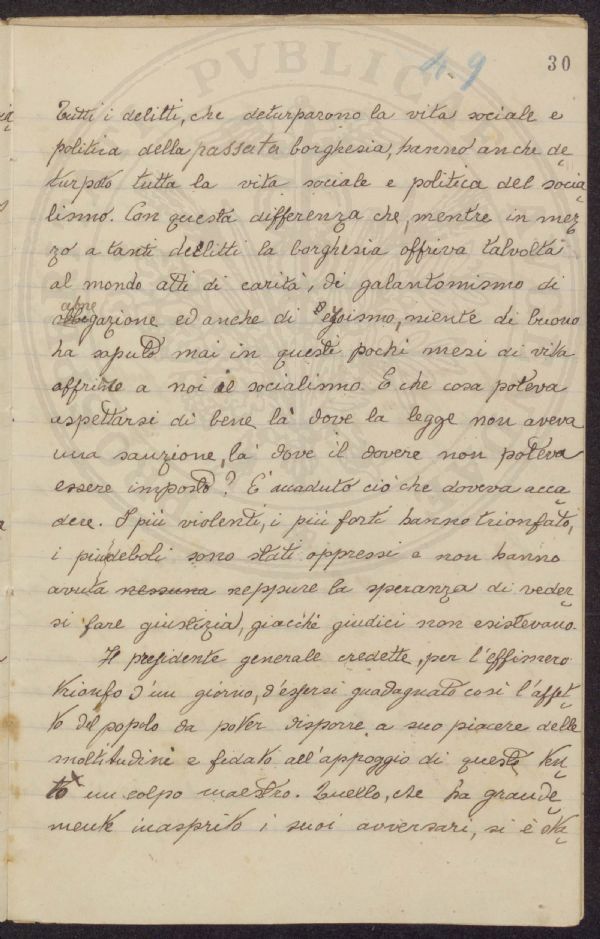 49
30
Tutti i delitti, che deturparono la vita sociale e
politica della passata borghesia, hanno anche de-
turpato tutta la vita sociale e politica del socia-
lismo. Con questa differenza che, mentre in mez-
zo a tanti delitti la borghesia offriva talvolta
al mondo atti di carità, di galantomismo di
abnegazione ed anche di egoismo, niente di buono
ha saputo mai in questi pochi mesi di vita
offrire a noi il socialismo. E che cosa poteva
aspettarsi di bene là dove la legge non aveva
una sanzione, là dove il dovere non poteva
essere imposto? E' accaduto ciò che doveva acca-
dere. I più violenti, i più forti hanno trionfato,
i più deboli sono stati oppressi e non hanno
avuta nessuna neppure la speranza di veder-
si fare giustizia, giacchè giudici non esistevano.
Il presidente generale credette, per l'effimero
trionfo d'un giorno, d'essersi guadagnato così l'affet-
to del popolo da poter disporre a suo piacere delle
moltitudini e fidato all'appoggio di queste ten-
tò un colpo maestro. Quello, che ha grande-
mente inasprito i suoi avversari, si è sta-
PVBLIC